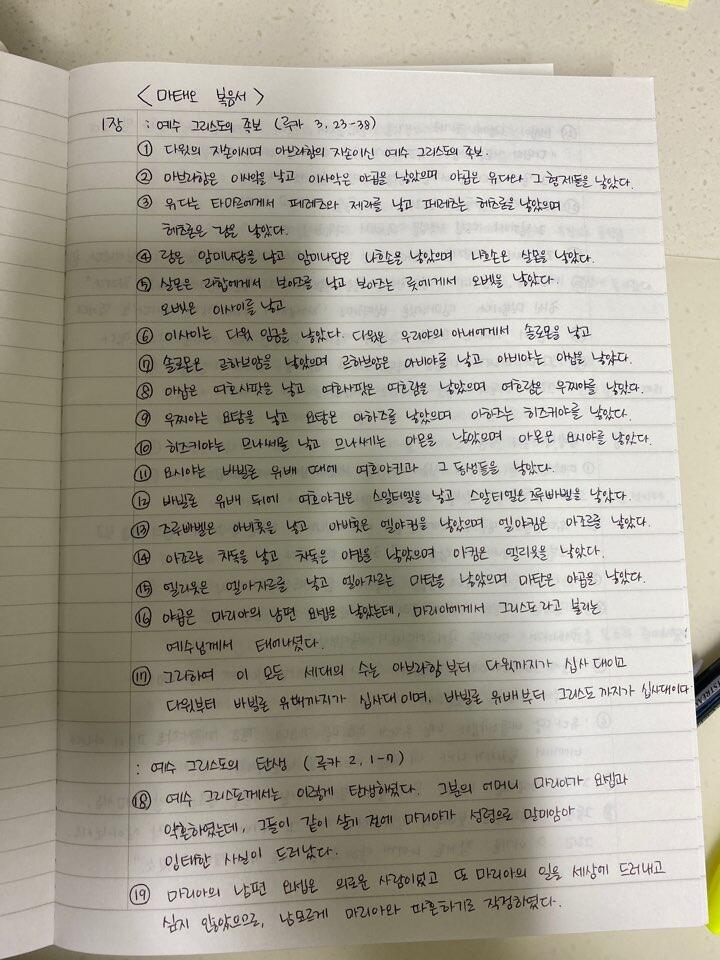 < 마태오 복음서 >
1장 : 예수 그리스도의 족보 (루카 3, 23-38)
① 다윗의 자손이시며 아브라함의 자손이신 예수 그리스도의 족보.
② 아브라함은 이사악을 낳고 이사악은 야곱을 낳았으며 야곱은 유다와 그 형제들을 낳았다.
③ 유다는 타마르에게서 페레츠와 제라를 낳고 페레츠는 헤츠론을 낳았으며
헤츠론은 람을 낳았다.
④ 람은 암미나답을 낳고 암미나답은 나흐손을 낳았으며 나흐손은 살몬을 낳았다.
⑤ 살몬은 라합에게서 보아즈를 낳고 보아즈는 룻에게서 오벳을 낳았다.
오벳은 이사이를 낳고
⑥ 이사이는 다윗 임금을 낳았다. 다윗은 우리야의 아내에게서 솔로몬을 낳고
⑦ 솔로몬은 르하브암을 낳았으며 르하브암은 아비야를 낳고 아비야는 아삽을 낳았다.
⑧ 아삽은 여호사팟을 낳고 여호사팟은 여호람을 낳았으며 여호람은 우찌야를 낳았다.
⑨ 우찌야는 요탐을 낳고 요탐은 아하즈를 낳았으며 아하즈는 히즈키야를 낳았다.
⑩ 히즈키야는 므나쎄를 낳고 므나쎄는 아몬을 낳았으며 아몬은 요시야를 낳았다.
⑪ 요시야는 바빌론 유배 때에 여호야킨과 그 동생들을 낳았다.
⑫ 바빌론 유배 뒤에 여호야킨은 스알티엘을 낳고 스알티엘은 즈루빠벨을 낳았다.
⑬ 즈루빠벨은 아비훗을 낳고 아비훗은 엘야킴을 낳았으며 엘야킴은 아조르를 낳았다.
⑭ 아조르는 차독을 낳고 차독은 아킴을 낳았으며 아킴은 엘리웃을 낳았다.
⑮ 엘리웃은 엘아자르를 낳고 엘아자르는 마탄을 낳았으며 마탄은 야곱을 낳았다.
⑯ 야곱은 마리아의 남편 요셉을 낳았는데, 마리아에게서 그리스도라고 불리는
예수님께서 태어나셨다.
⑰ 그리하여 이 모든 세대의 수는 아브라함부터 다윗까지가 십사 대이고
다윗부터 바빌론 유배까지가 십사대이며, 바빌론 유배부터 그리스도까지가 십사대이다.
: 예수 그리스도의 탄생 (루카 2, 1-7)
⑱ 예수 그리스도께서는 이렇게 탄생하셨다. 그분의 어머니 마리아가 요셉과
약혼하였는데, 그들이 같이 살기 전에 마리아가 성령으로 말미암아
잉태한 사실이 드러났다.
⑲ 마리아의 남편 요셉은 의로운 사람이었고 또 마리아의 일을 세상에 드러내고
싶지 않았으므로, 남모르게 마리아와 파혼하기로 작정하였다.